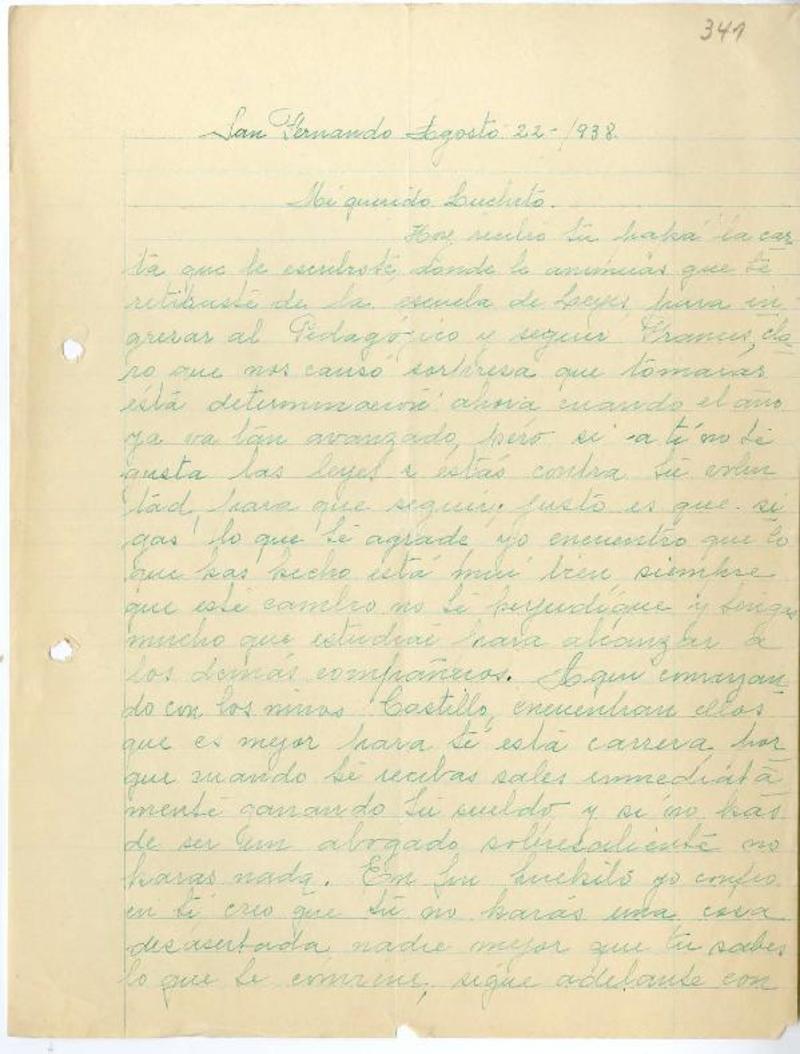 341
San Fernando Agosto 22-/938.
Mi querido Luchito.
Hoy recibio tu papá la car
ta que le escribisté, donde le anuncias que té
retirasté de la escuela de Leyes para in
gresar al Pedagógico y seguir Frances, cla
ro que nos causó sorpresa que tomaras
está determinación ahora cuando el año
ya va tán avanzado, pero si a tí no té
gusta las leyes i estás contra tú volun
tád, para que seguir, justo es que si
gas lo que té agrade yo encuentro que lo
que has hecho está mui bien siempre
que esté cambio no té perjudique y tengas
mucho que estudiar para alcanzar a
los demás compañeros. Aqui comenzan
do con los niños Castillo, encuentran ellos
que es mejor para tí está carrera, por
que cuando té recibas sales inmediáta
menté ganando tú sueldo, y si no has
de ser un abogado sobresalienté no
haras nada. En fin Luchito yo confio
en tí creo que tú no harás una cosa
desasertada nadie mejor que tu sabes
lo que te conviene, sigue adelante con